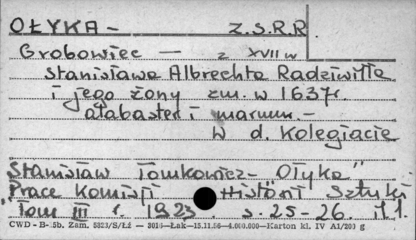 OŁYKA — Z.S.R.R
Grobowiec — z XVII w
Stanisława Albrechta Radziwiłła
i jego żony zm. w 1637r.
alabaster i marmur. —
W d. Kolegiacie
Stanisław Tomkowicz - Ołyka"
"Prace Komisji Historii Sztuki
"Tom III r. 1923. s. 25-26. il.1.
CWD - B- 5b. Zam. 8823/S/Łd — 3016—Łak—15.11.56—4.000.000—Karton kl. IV A1/200 g